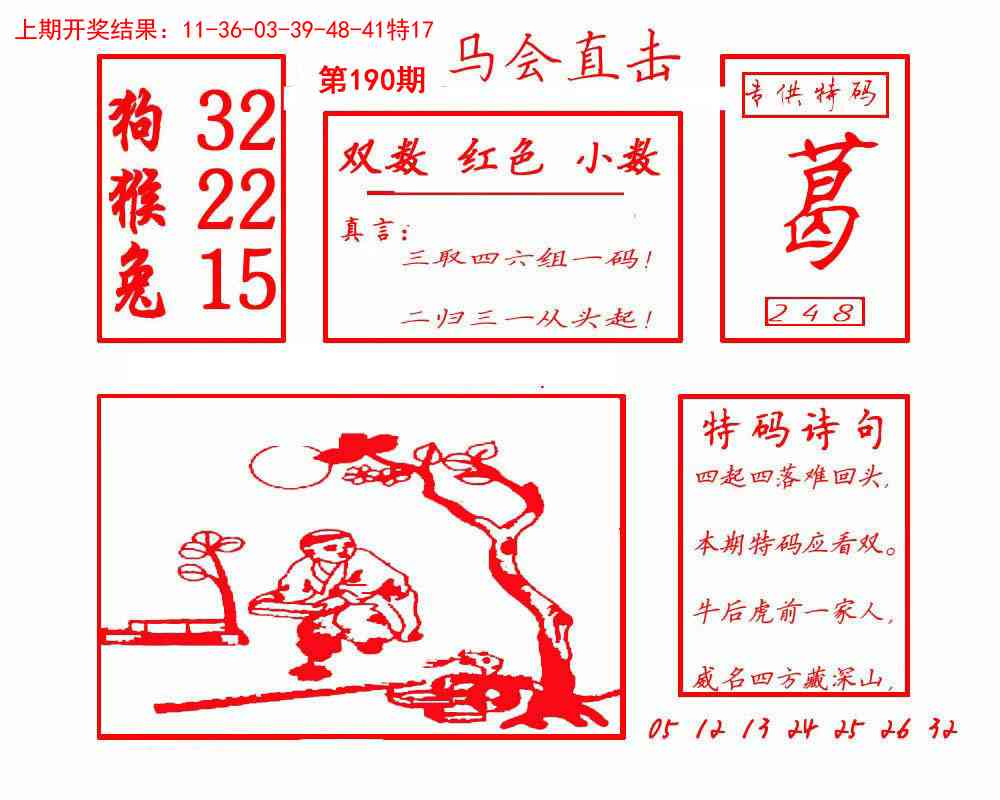 上期开奖结果：11-36-03-39-48-41特17
第190期
马会直击
狗 32
猴 22
兔 15
双数 红色 小数
真言：
三取四六组一码！
二归三一从头起！
专供特码
葛
248
特码诗句
四起四落难回头，
本期特码应看双。
牛后虎前一家人，
威名四方藏深山，
05 12 13 24 25 26 32